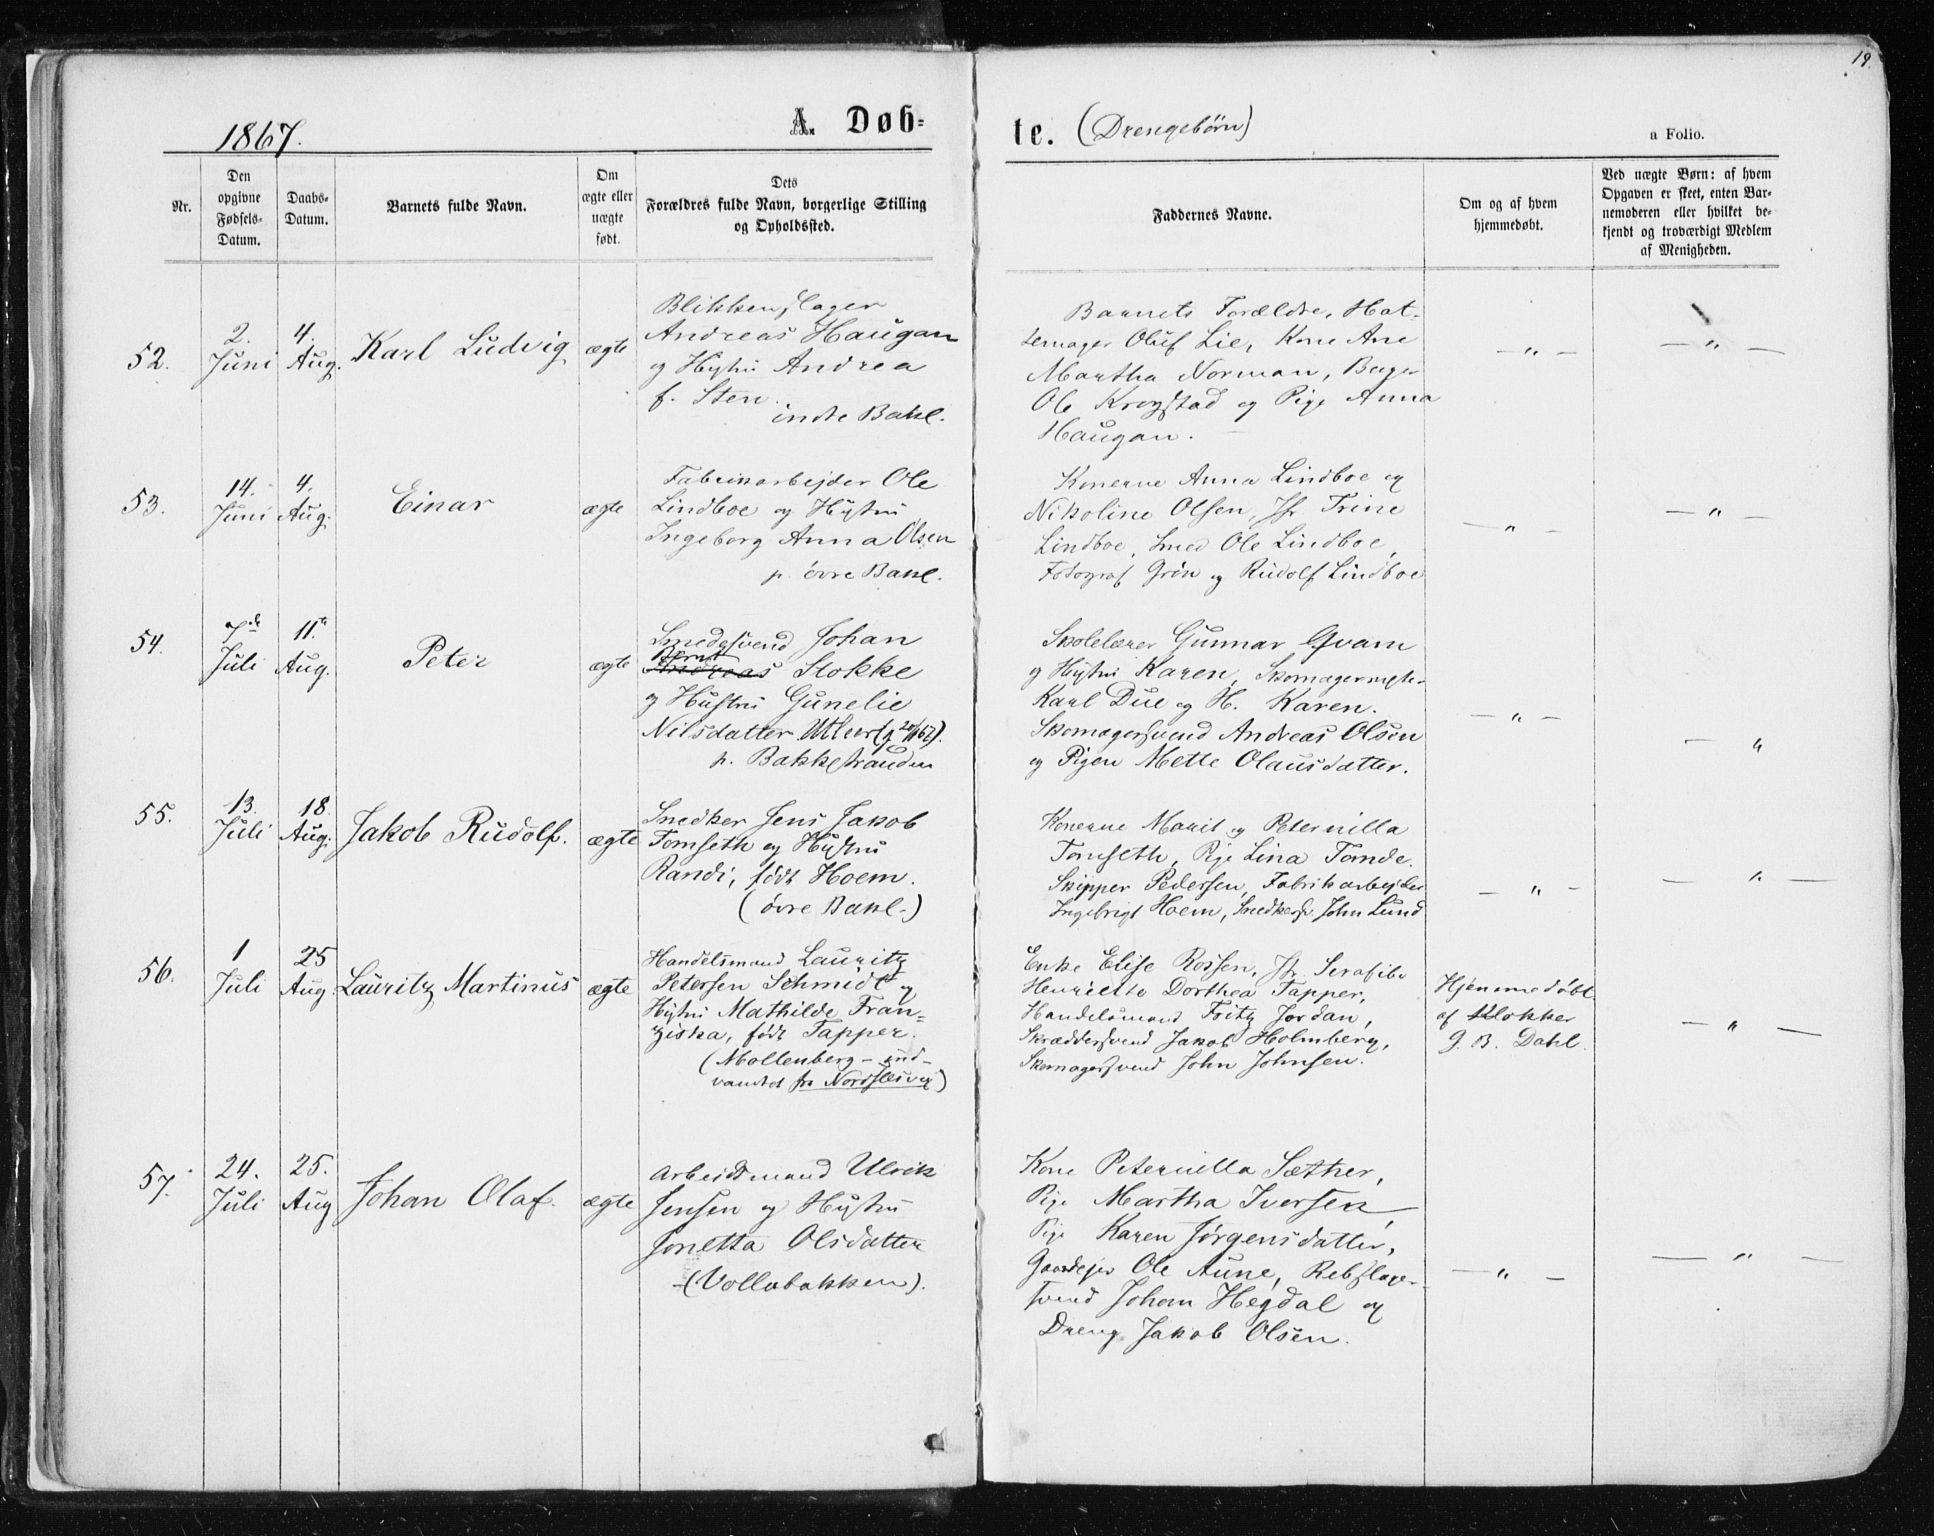 19.
1867.
A. Døb-
te. (Drengebørn)
a Folio.
Nr.
Den opgivne Fødsels-Datum.
Daabs-Datum.
Barnets fulde Navn.
Om ægte eller uægte født.
Dets Forældres fulde Navn, borgerlige Stilling og Opholdssted.
Faddernes Navne.
Om og af hvem hjemmedøbt.
Ved uægte Børn: af hvem Opgaven er skeet, enten Barnemoderen eller hvilket bekjendt og troværdigt Medlem af Menigheden.
52.
2. Juni
4. Aug.
Karl Ludvig
ægte
Blikkenslager
Andreas Haugan
og Hustru Andrea
f. Sten.
indre Bakl.
Barnets Forældre, Hat-
temager Oluf Lie, Kone Ane
Martha Norman, Bager
Ole Krogstad og Pige Anna
Haugan.
— " —
— " —
53.
14. Juni
4. Aug.
Einar
ægte
Fabrikarbejder Ole
Lindboe og Hustru
Ingeborg Anna Olsen
p. øvre Bakl.
Konerne Anna Lindboe og
Nikoline Olsen, Jfr. Trine
Lindboe, Smed Ole Lindboe,
Fotograf Grön og Rudolf Lindboe
— " —
— " —
54.
7de Juli
11te Aug.
Peter
ægte
Smedesvend Johan
Bernt
Andreas Stokke
og Hustru Gunelie
Nilsdatter
p. Bakkestranden
Skolelærer Gunnar Qvam
og Hustru Karen, Skomagermester
Karl Due og H. Karen.
Skomagersvend Andreas Olsen
og Pigen Mette Olausdatter.
— " —
— "
55.
13. Juli
18. Aug.
Jakob Rudolf.
ægte
Snedker Jens Jakob
Tomseth og Hustru
Randi, født Hoem.
(øvre Bakl.)
Konerne Marit og Peternilla
Tomseth, Pige Lina Tomde.
Skipper Pedersen, Fabrikarbejder
Ingebrigt Hoem, Snedkersv. John Lund
— " —
— " —
56.
1 Juli
25 Aug
Lauritz Martinus
ægte
Handelsmand Lauritz
Petersen Schmidt og
Hustru Mathilde Fran-
ziska, født Tapper.
(Mollenberg - ind-
vandret fra Nordslesvig)
Enke Elise Rossen, Jfr. Serafine
Henriette Dorthea Tapper,
Handelsmand Fritz Jordan,
Skræddersvend Jakob Holmberg,
Skomagersvend John Johnsen.
Hjemmedøbt
af Klokker
G. B. Dahl.
— " —
57.
24. Juli
25. Aug
Johan Olaf.
ægte
Arbeidsmand Ulrik
Jensen og Hustru
Jonetta Olsdatter
(Vollabakken).
Kone Peternella Sæther,
Pige Martha Iversen,
Pige Karen Jørgensdatter,
Gaardejer Ole Aune, Rebslager-
svend Johan Hegdal og
Dreng Jakob Olsen.
— " —
— " —